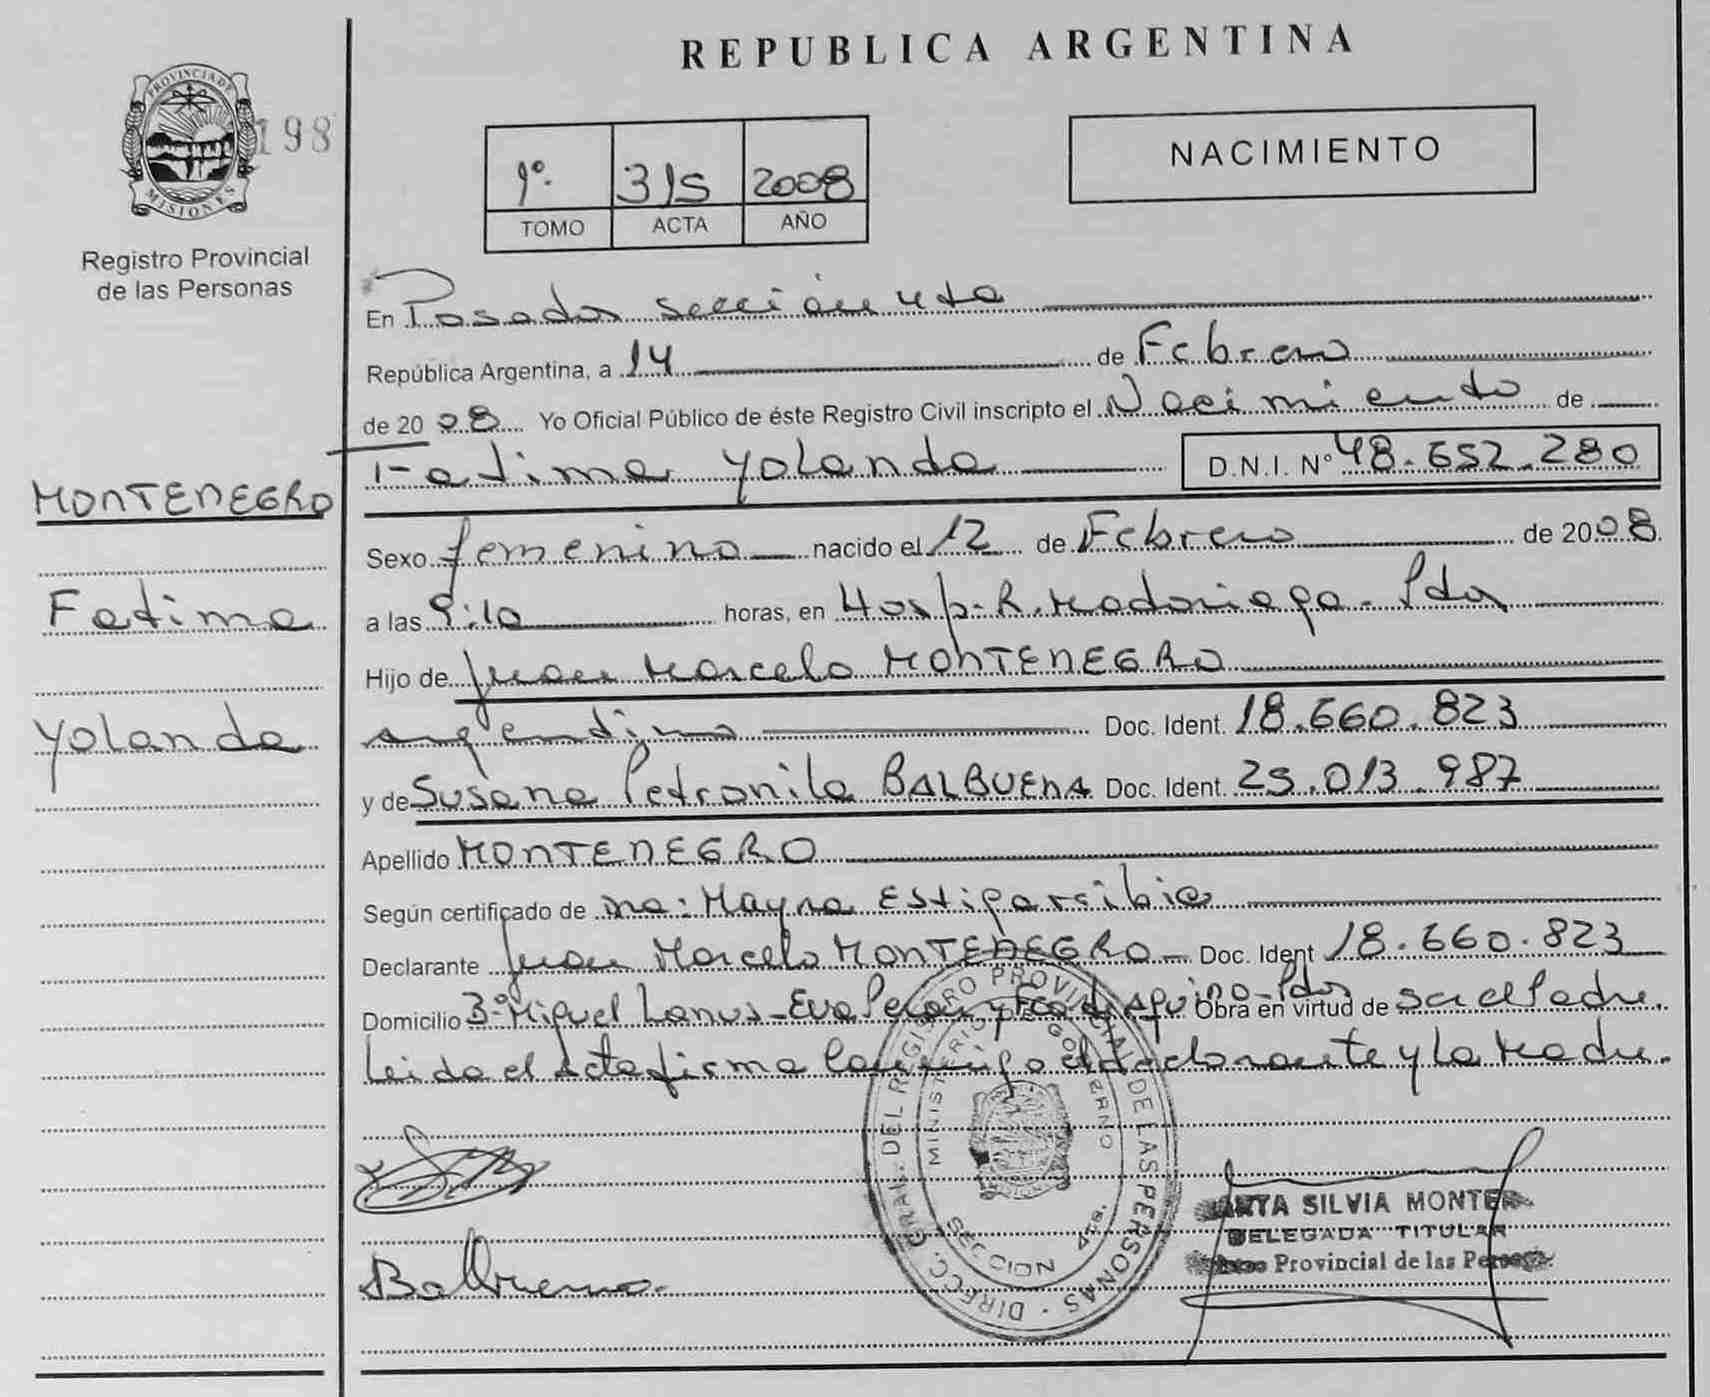 REPUBLICA ARGENTINA
PROVINCIA DE
MISIONES
198
Registro Provincial
de las Personas
1º. 315 2008
TOMO ACTA AÑO
NACIMIENTO
En Posadas sección 4ta
República Argentina, a 14 de Febrero
de 2008 Yo Oficial Público de éste Registro Civil inscripto el Nacimiento de
Fatima Yolanda D.N.I. Nº 48.652.280
MONTENEGRO
Fatima
Yolanda
Sexo femenino nacido el 12 de Febrero de 2008
a las 9:10 horas, en Hosp. R. Madariaga - Pdas
Hijo de Juan Marcelo MONTENEGRO
argentino Doc. Ident. 18.660.823
y de Susana Petronila BALBUENA Doc. Ident. 25.013.987
Apellido MONTENEGRO
Según certificado de Mayra
Declarante Juan Marcelo MONTENEGRO - Doc. Ident 18.660.823
Domicilio 3º Miguel Lanus - Eva Peron y Aquino - Pdas Obra en virtud de ser el Padre.
Leida el Acta firma conmigo el declarante y la Madre.
DIRECC. GRAL. DEL REGISTRO PROVINCIAL DE LAS PERSONAS
MINISTERIO DE GOBIERNO
SECCION 4ta.
SILVIA MONTE
DELEGADA TITULAR
Provincial de las
Balbuena.